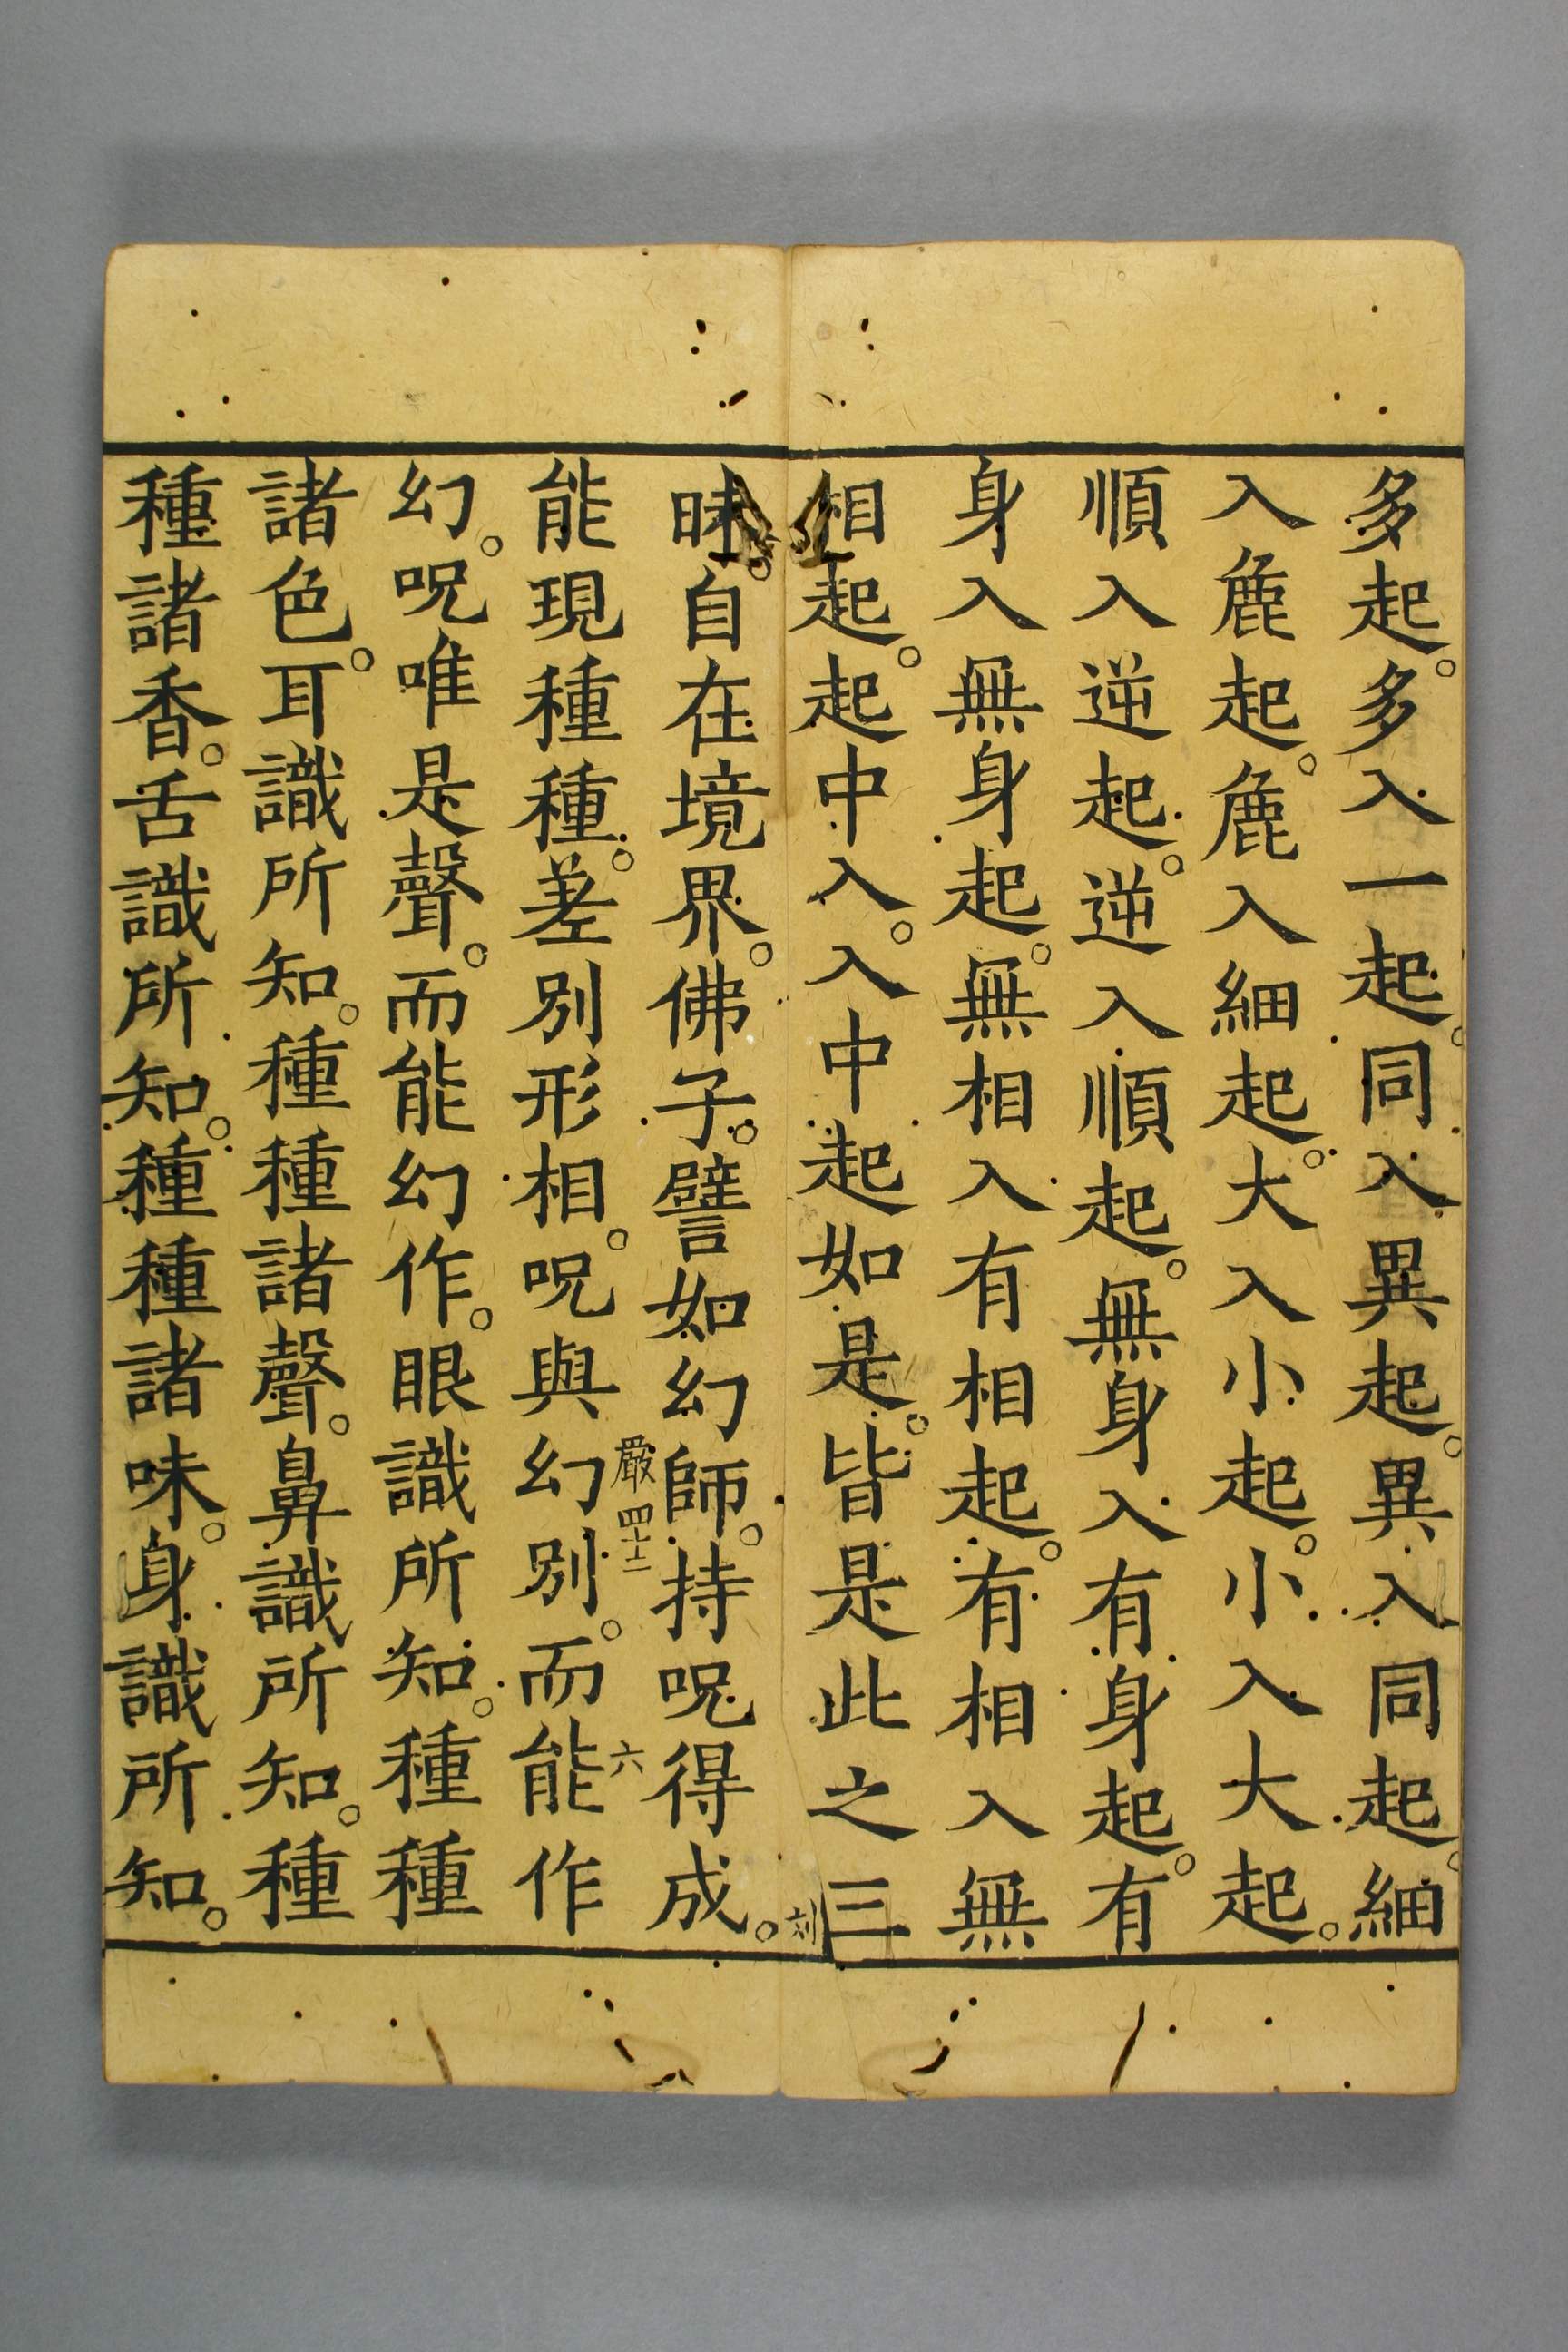 多起。多入一起。同入異起。異入同起。細
入麁起。麁入細起。大入小起。小入大起。
順入逆起。逆入順起。無身入有身起。有
身入無身起。無相入有相起。有相入無
相起。起中入。入中起如是。皆是此之三
刘
昧。自在境界。佛子。譬如幻師。持呪得成。
嚴四十二
六
能現種種。差別形相。呪與幻別。而能作
幻。呪唯是聲。而能幻作。眼識所知。種種
諸色。耳識所知。種種諸聲。鼻識所知。種
種諸香。舌識所知。種種諸味。身識所知。